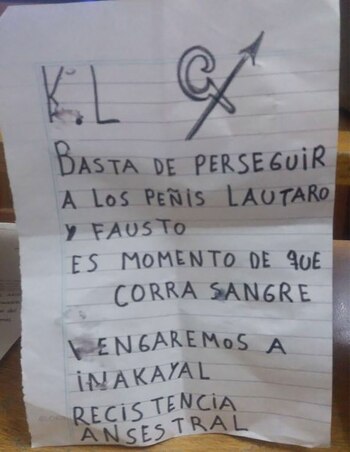 K.L
BASTA DE PERSEGUIR
A LOS PEÑIS LAUTARO
Y FAUSTO
ES MOMENTO DE QUE
CORRA SANGRE
VENGAREMOS A
INAKAYAL
RECISTENCIA
ANSESTRAL